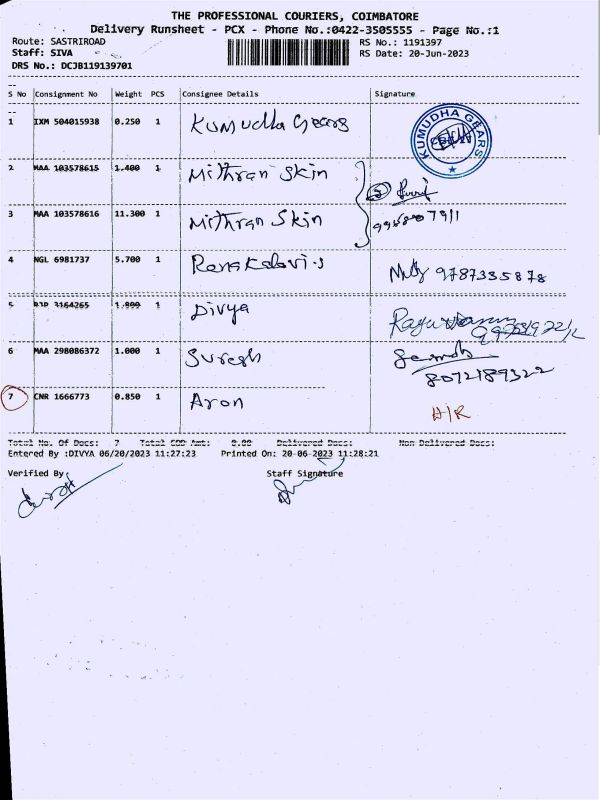 THE PROFESSIONAL COURIERS, COIMBATORE
Delivery Runsheet - PCX - Phone No.:0422-3505555 - Page No.:1
Route: SASTRIROAD RS No.: 1191397
Staff: SIVA RS Date: 20-Jun-2023
DRS No.: DCJB119139701
S No Consignment No Weight PCS Consignee Details Signature
1 IXM 504015938 0.250 1 Kumudha Gears KUMUDHA GEARS
2 MAA 103578615 1.400 1 Mithran Skin
3 MAA 103578616 11.300 1 Mithran Skin
4 NGL 6981737 5.700 1 9787385878
5 RJP 3164265 1.800 1 Divya
6 MAA 298086372 1.000 1 Suresh
8072189322
7 CNR 1666773 0.850 1 Aron H/R
Total No. Of Docs: 7 Total COD Amt: 0.00 Delivered Docs: Non Delivered Docs:
Entered By :DIVYA 06/20/2023 11:27:23 Printed On: 20-06-2023 11:28:21
Verified By Staff Signature